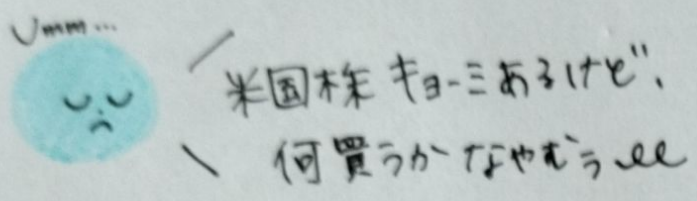 Umm...
米国株 キョーミあるけど、
何買うかなやむぅ